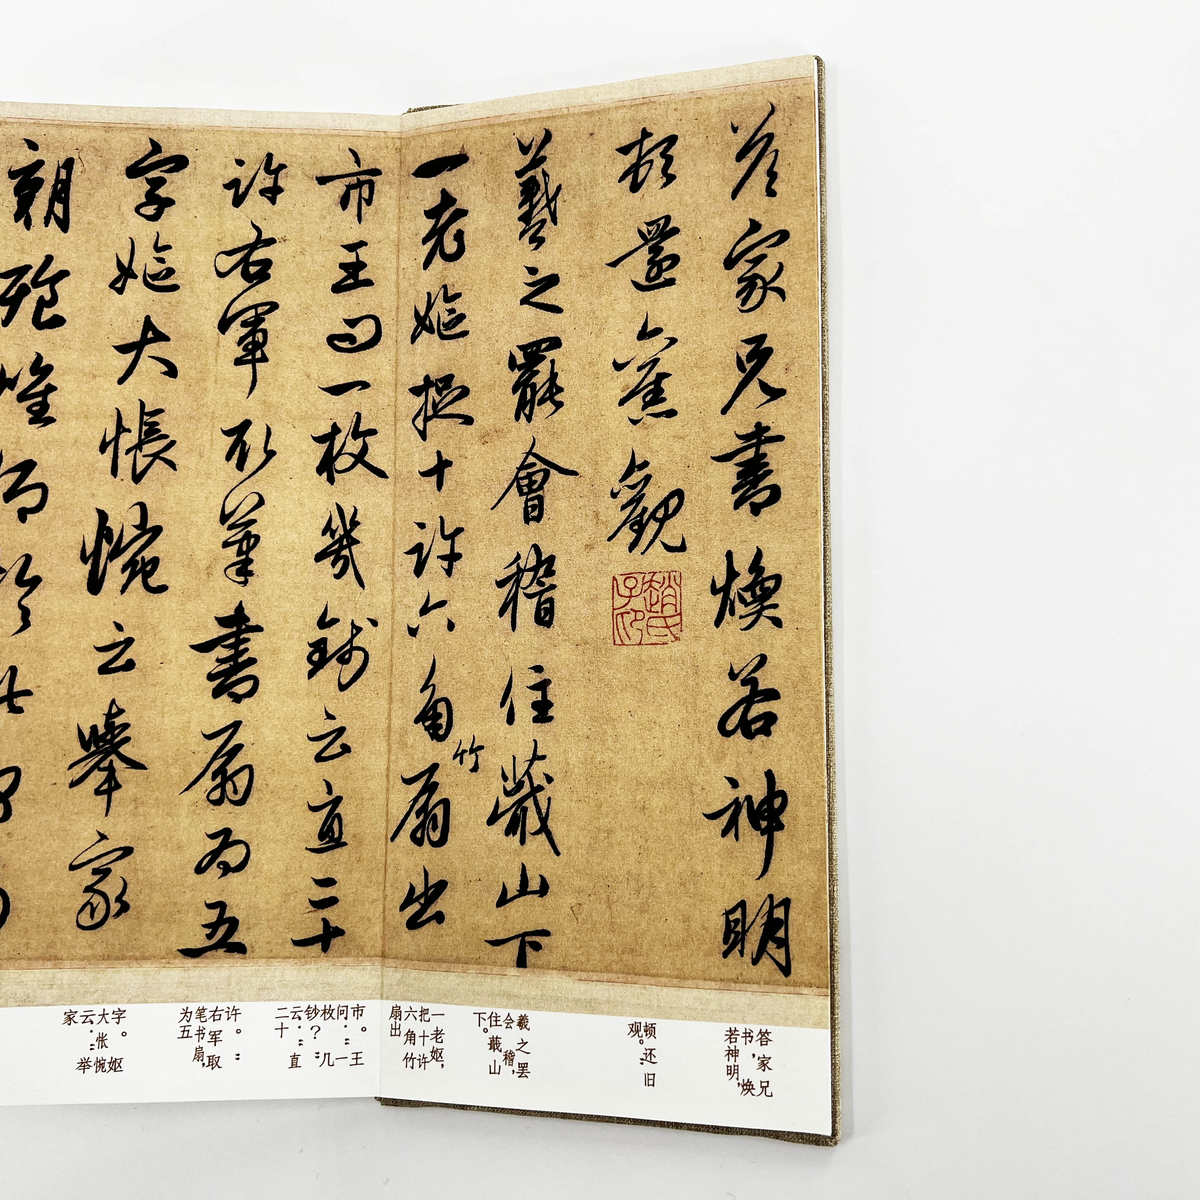 答家兄書煥若神明
頓還舊觀
趙氏子昂
羲之罷會稽住蕺山下
一老嫗捉十許六角竹扇出
市王問一枚幾錢云直二十
許右軍取筆書扇為五
字嫗大悵惋云舉家
朝飡惟仰於此
答家兄
书，焕
若神明，
顿还旧
观。
羲之罢
会稽，
住蕺山
下。
一老妪，
把十许
六角竹
扇出
市。王
问：“一
枚几
钞？”
云：“直
二十
许。”
右军取
笔书扇，
为五
字。妪
大怅惋
云：“举
家